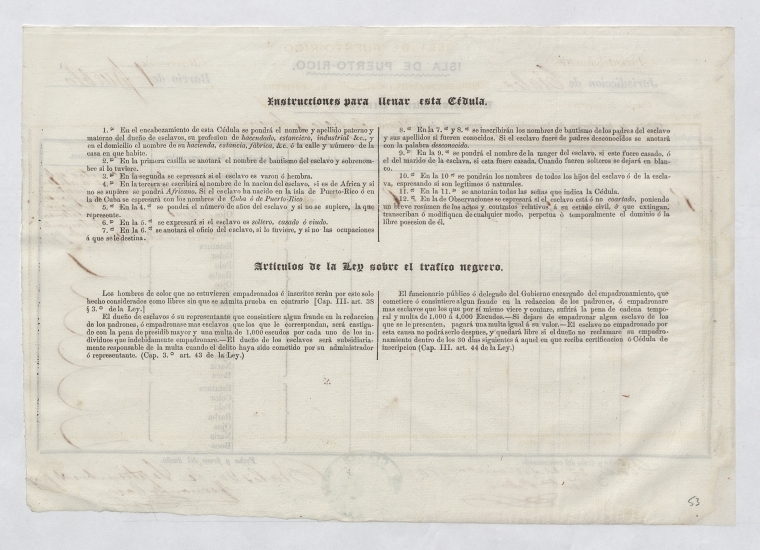 Instrucciones para llenar esta Cédula.
1.ª En el encabezamiento de esta Cédula se pondrá el nombre y apellido paterno y
materno del dueño de esclavos, su profesion de hacendado, estanciero, industrial &c., y
en el domicilio el nombre de su hacienda, estancia, fábrica, &c. ó la calle y número de la
casa en que habite.
2.ª En la primera casilla se anotará el nombre de bautismo del esclavo y sobrenom-
bre si lo tuviere.
3.ª En la segunda se expresará si el esclavo es varon ó hembra.
4.ª En la tercera se escribirá el nombre de la nacion del esclavo, si es de Africa y si
no se supiere se pondrá Africano. Si el esclavo ha nacido en la isla de Puerto-Rico ó en
la de Cuba se expresará con los nombres de Cuba ó de Puerto-Rico
5.ª En la 4.ª se pondrá el número de años del esclavo y si no se supiere, la que
represente.
6.ª En la 5.ª se expresará si el esclavo es soltero, casado ó viudo.
7.ª En la 6.ª se anotará el oficio del esclavo, si lo tuviere, y si no las ocupaciones
á que se le destina.
8.ª En la 7.ª y 8.ª se inscribirán los nombres de bautismo de los padres del esclavo
y sus apellidos si fueren conocidos. Si el esclavo fuere de padres desconocidos se anotará
con la palabra desconocido.
9.ª En la 9.ª se pondrá el nombre de la muger del esclavo, si este fuere casado, ó
el del marido de la esclava, si esta fuere casada. Cuando fueren solteros se dejará en blan-
co.
10.ª En la 10.ª se pondrán los nombres de todos los hijos del esclavo ó de la escla-
va, expresando si son legítimos ó naturales.
11.ª En la 11.ª se anotarán todas las señas que indica la Cédula.
12.ª En la de Observaciones se expresará si el esclavo está ó no coartado, poniendo
un breve resúmen de los actos y contratos relativos á su estado civil, ó que extingan,
transcriban ó modifiquen de cualquier modo, perpetua ó temporalmente el dominio ó la
libre posesion de él.
Artículos de la Ley sobre el trafico negrero.
Los hombres de color que no estuvieren empadronados ó inscritos serán por este solo
hecho considerados como libres sin que se admita prueba en contrario [Cap. III. art. 38
§ 3.º de la Ley.]
El dueño de esclavos ó su representante que consintiere algun fraude en la redaccion
de los padrones, ó empadronase mas esclavos que los que le correspondan, será castiga-
do con la pena de presidio mayor y una multa de 1.000 escudos por cada uno de los in-
dividuos que indebidamente empadronare.—El dueño de los esclavos será subsidiaria-
mente responsable de la multa cuando el delito haya sido cometido por su administrador
ó representante. (Cap. 3.º art. 43 de la Ley.)
El funcionario público ó delegado del Gobierno encargado del empadronamiento, que
cometiere ó consintiere algun fraude en la redaccion de los padrones, ó empadronare
mas esclavos que los que por sí mismo viere y contare, sufrirá la pena de cadena tempo-
ral y multa de 1,000 á 4,000 Escudos.—Si dejare de empadronar algun esclavo de los
que se le presenten, pagará una multa igual á su valor.—El esclavo no empadronado por
esta causa no podrá serlo despues, y quedará libre si el dueño no reclamare su empadro-
namiento dentro de los 30 dias siguientes á aquel en que reciba certificacion ó Cédula de
inscripcion (Cap. III. art. 44 de la Ley.)
53